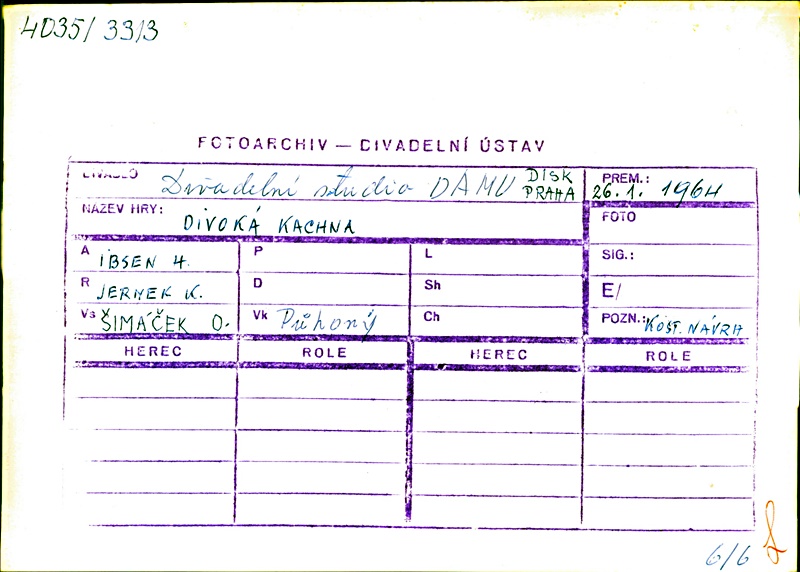 4035/ 3313
FOTOARCHIV — DIVADELNÍ ÚSTAV
DIVADLO Divadelní studio DAMU DISK PRAHA
PREM.: 26.1. 1964
NÁZEV HRY: DIVOKÁ KACHNA
FOTO
A IBSEN H. P L SIG.:
R JERNEK K. D Sh E/
Vs ŠIMÁČEK O. Vk Průhoný Ch POZN.: KOST. NÁVRH
HEREC ROLE HEREC ROLE
6/6